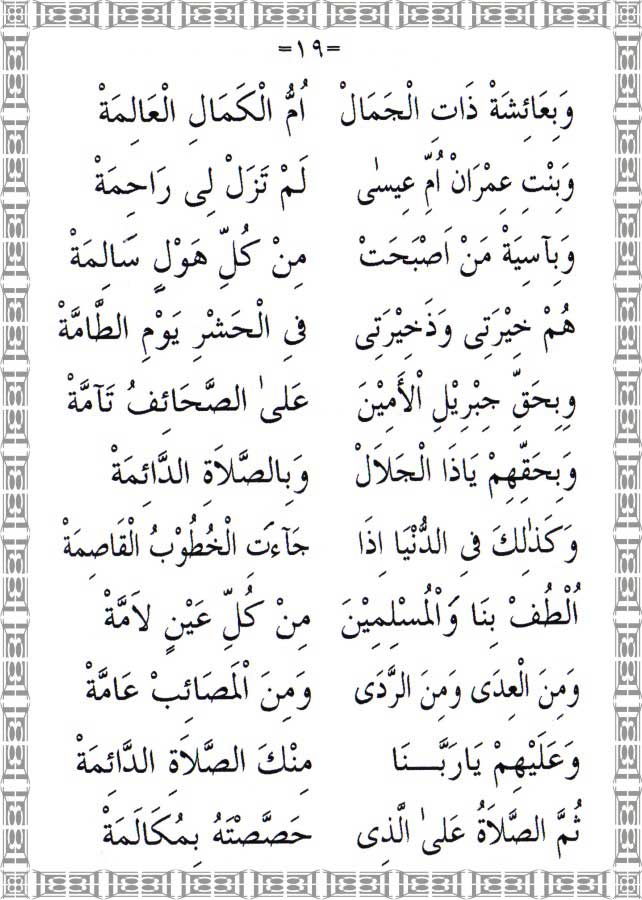 =١٩=
وَبِعَائِشَةْ ذَاتِ الْجَمَالْ اُمُّ الْكَمَالِ الْعَالِمَةْ
وَبِنْتِ عِمْرَانْ اُمِّ عِيسٰى لَمْ تَزَلْ لِى رَاحِمَةْ
وَبِآسِيَةْ مَنْ اَصْبَحَتْ مِنْ كُلِّ هَوْلٍ سَالِمَةْ
هُمْ خِيْرَتِى وَذَخِيْرَتِى فِى الْحَشْرِ يَوْمِ الطَّامَّةْ
وَبِحَقِّ جِبْرِيْلِ الْأَمِيْنَ عَلىٰ الصَّحَائِفُ تَآمَّةْ
وَبِحَقِّهِمْ يَاذَا الْجَلَالْ وَبِالصَّلَاةِ الدَّائِمَةْ
وَكَذٰلِكَ فِى الدُّنْيَا اِذَا جَآءَتِ الْخُطُوْبُ الْقَاصِمَةْ
اُلْطُفْ بِنَا وَالْمُسْلِمِيْنَ مِنْ كُلِّ عَيْنٍ لاَمَّةْ
وَمِنَ الْعِدَى وَمِنَ الرَّدَى وَمِنَ الْمَصَائِبْ عَامَّةْ
وَعَلَيْهِمْ يَارَبَّـــنَا مِنْكَ الصَّلَاةِ الدَّائِمَةْ
ثُمَّ الصَّلَاةُ عَلىٰ الَّذِى خَصَّصْتَهُ بِمُكَالَمَةْ